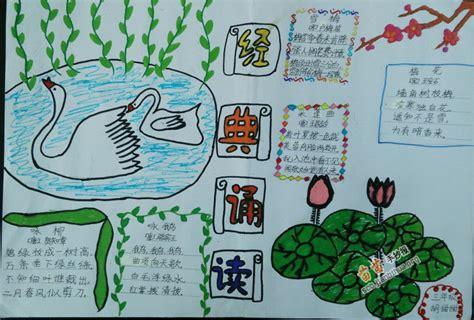 经典诵读
雪梅
梅雪争春未肯降
骚人阁笔费评章
采莲曲
荷叶罗裙一色裁
芙蓉向脸两边开
乱入池中看不见
闻歌始觉有人来
梅花
墙角数枝梅,
凌寒独自开。
遥知不是雪,
为有暗香来。
咏柳
(唐)贺知章
一树高,
万条垂下绿丝绦。
不知细叶谁裁出,
二月春风似剪刀。
咏鹅
(唐)骆宾王
鹅,鹅,鹅,
曲项向天歌。
白毛浮绿水,
红掌拨清波。
三年级